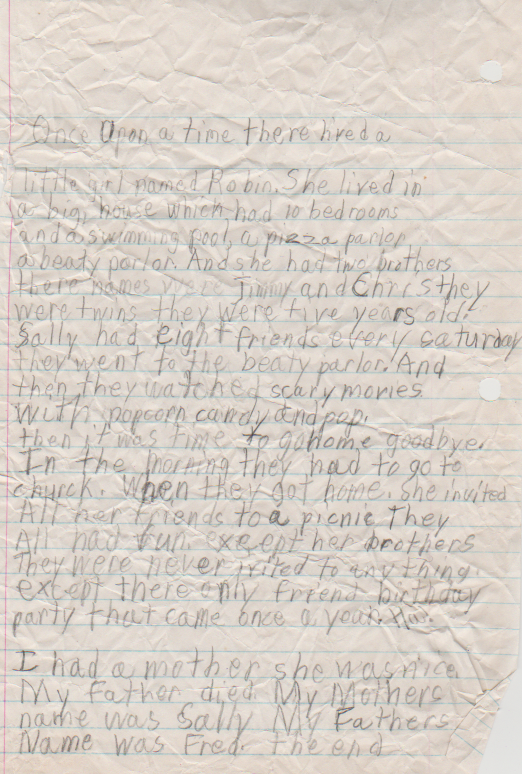 Once Upon a time there lived a
little girl named Robin. She lived in
a big, house which had 10 bedrooms
and a swimming pool, a pizza parlor,
a beaty parlor. And she had two brothers
there names were Jimmy and Chris they
were twins they were five years old.
Sally had eight friends every saturday
they went to the beaty parlor. And
then they watched scary movies
with popcorn candy and pop.
then it was time to go home goodbye.
In the morning they had to go to
church. When they got home. she invited
All her friends to a picnic. They
All had fun. except her brothers
They were never invited to anything
except there only friend birthday
party that came once a year.
I had a mother she was nice.
My father died. My Mothers
name was Sally My Fathers
Name was Fred. the end